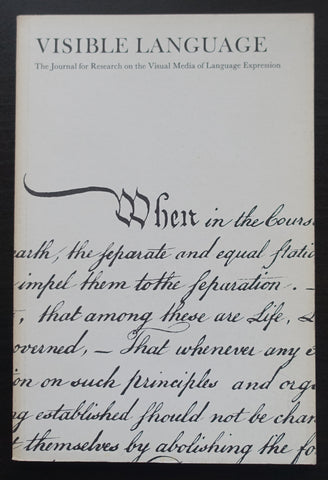 VISIBLE LANGUAGE
The Journal for Research on the Visual Media of Language Expression
When in the Cours
arth, the ſeparate and equal ſtatio
impel them to the ſeparation. —
, that among theſe are Life, L
overned, — That whenever any
on on such principles and orga
g established ſhould not be chan
themselves by abolishing the fo